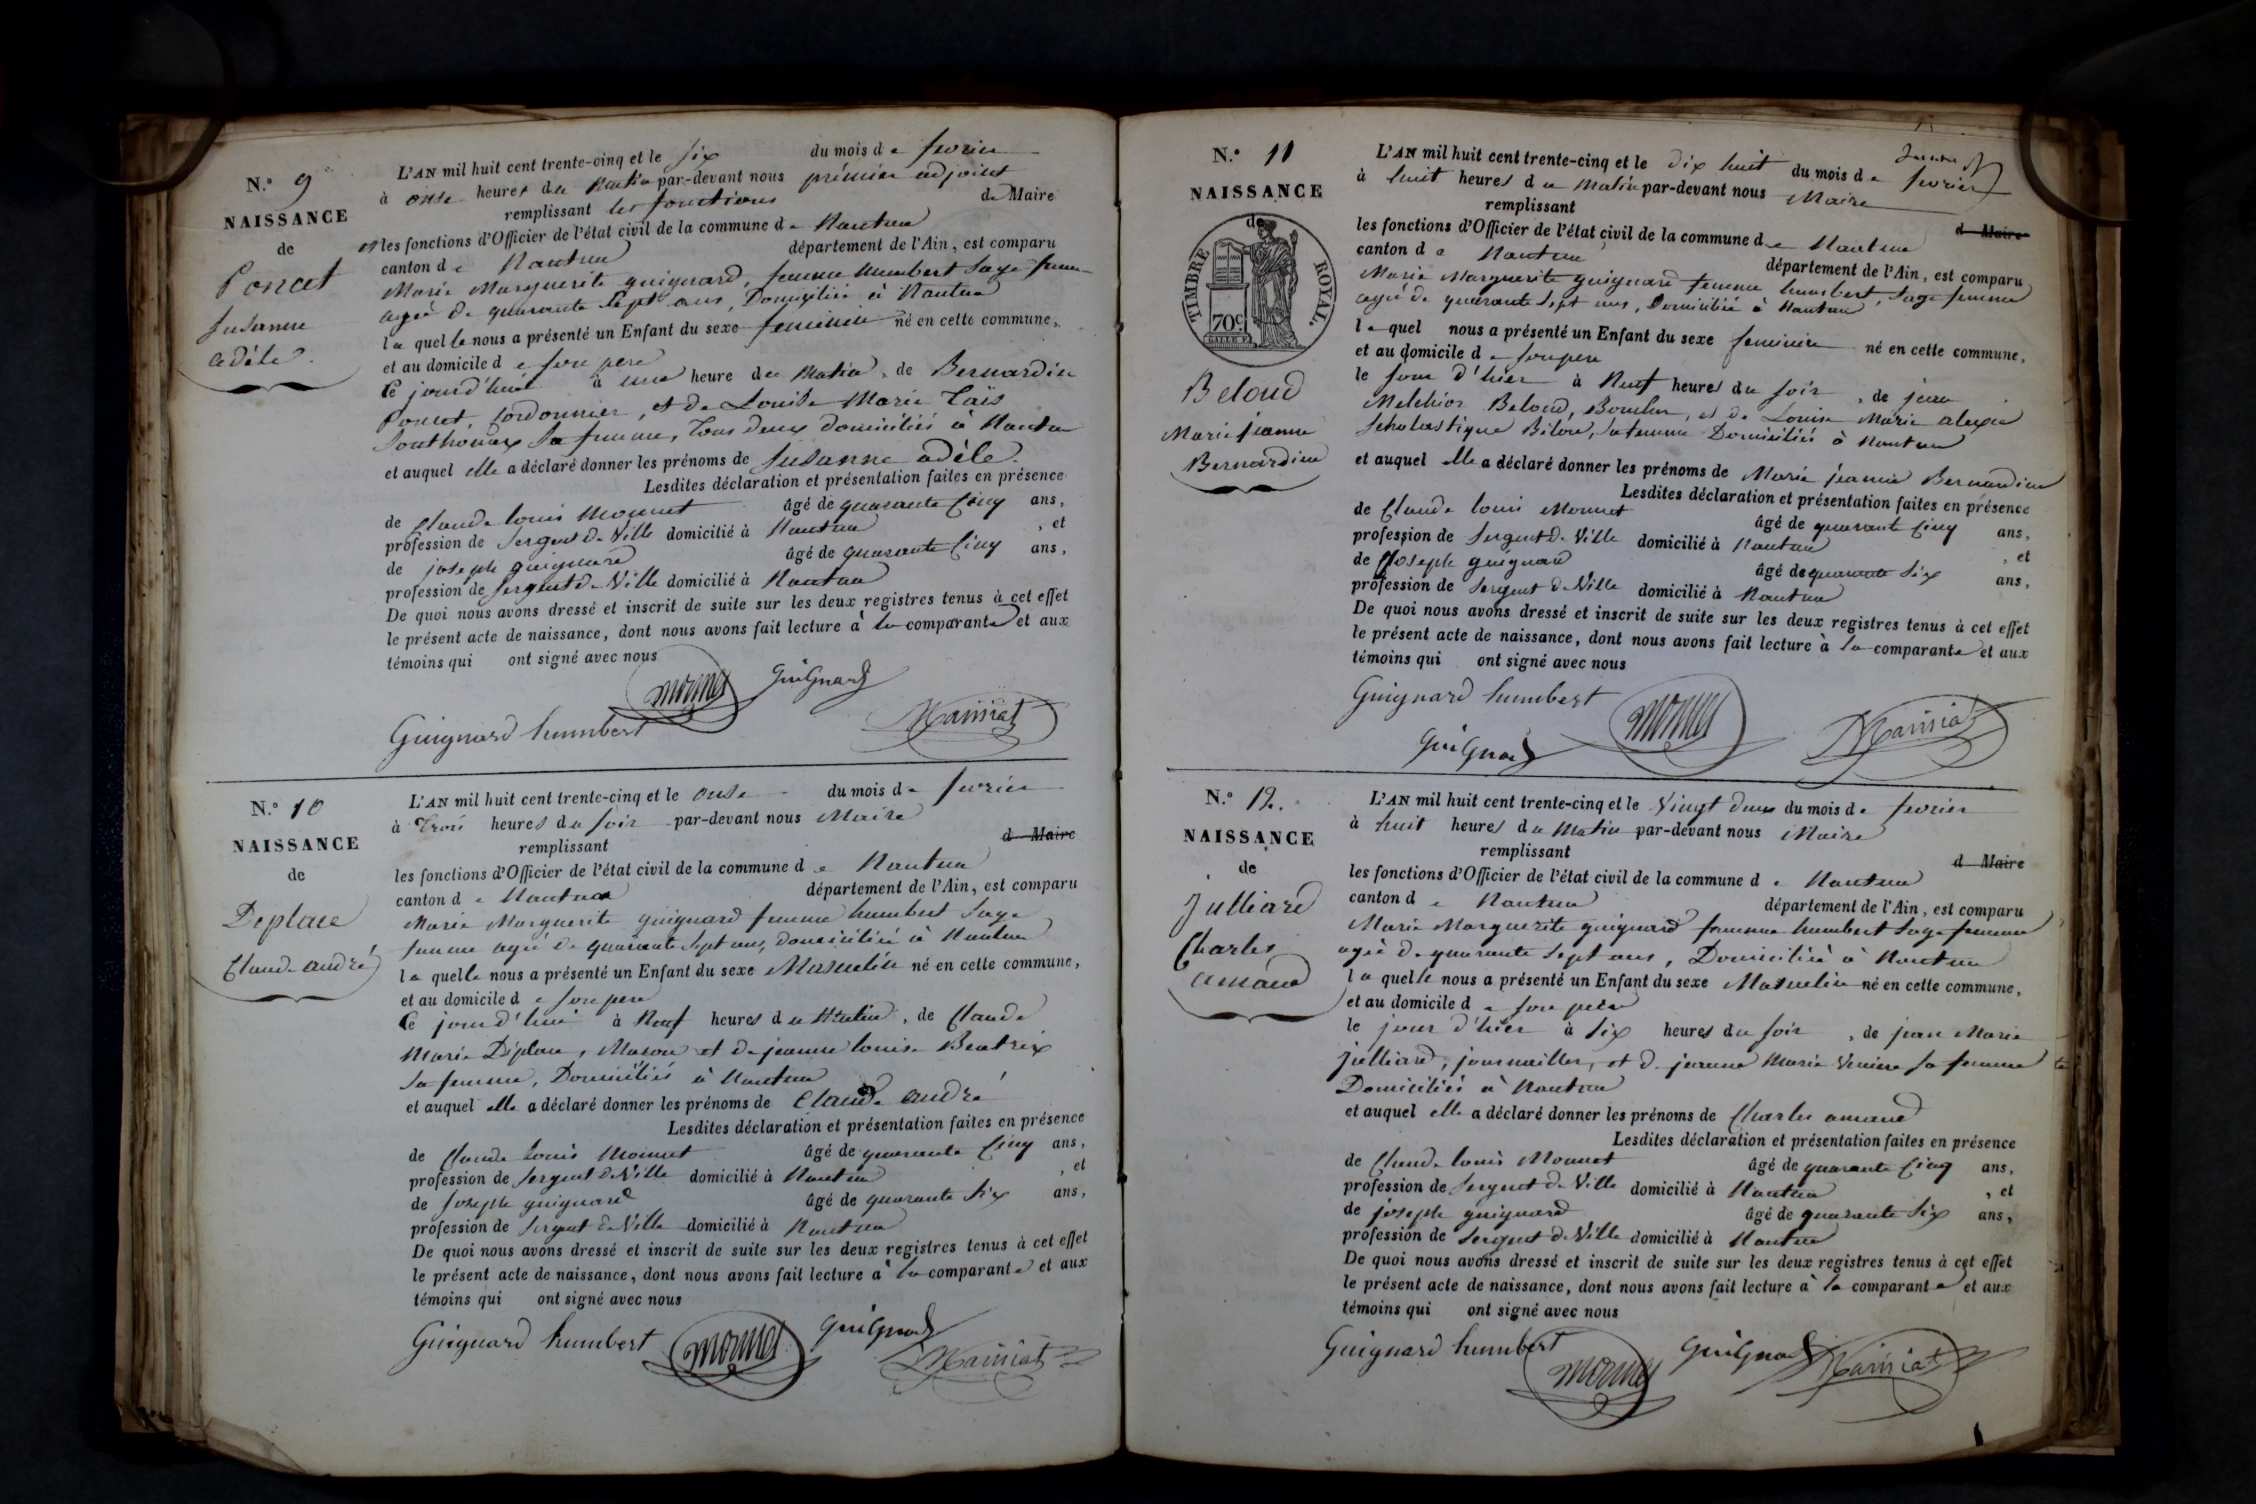 N.º 9
NAISSANCE
de
Poncet
Susanne
adèle.
L'AN mil huit cent trente-cinq et le six du mois de fevrier
à onse heures du Matin par-devant nous prémier adjoint
remplissant les fonctions de Maire
et les fonctions d'Officier de l'état civil de la commune de Nantua
canton de Nantua département de l'Ain, est comparu
Marie Marguerite guignard, femme humbert Sage femme
agée de quarante Sept ans, Domiciliée à Nantua
laquelle nous a présenté un Enfant du sexe feminin né en cette commune,
et au domicile de son pere
Ce jourd'hui à une heure du Matin, de Bernardin
Poncet, Cordonnier, et de Louise Marie Taïs
Southonax Sa femme, Tous deux domiciliés à Nantua
et auquel elle a déclaré donner les prénoms de Susanne adèle.
Lesdites déclaration et présentation faites en présence
de Claude louis Monnet âgé de quarante Cinq ans,
profession de Sergent de Ville domicilié à Nantua, et
de joseph guignard âgé de quarante Cinq ans,
profession de Sergent de Ville domicilié à Nantua
De quoi nous avons dressé et inscrit de suite sur les deux registres tenus à cet effet
le présent acte de naissance, dont nous avons fait lecture à la comparante et aux
témoins qui ont signé avec nous
monnet guignard
Guignard humbert
N.º 10
NAISSANCE
de
Deplace
Claude andré
L'AN mil huit cent trente-cinq et le onse du mois de fevrier
à Trois heures du soir par-devant nous Maire
remplissant d Maire
les fonctions d'Officier de l'état civil de la commune de Nantua
canton de Nantua département de l'Ain, est comparu
Marie Marguerite guignard femme humbert Sage
femme agée de quarante Sept ans, domiciliée à Nantua
laquelle nous a présenté un Enfant du sexe Masculin né en cette commune,
et au domicile de son pere
Ce jourd'hui à Neuf heures du Matin, de Claude
Marie Déplace, Masson et de jeanne louise Beatrix
Sa femme, Domiciliés à Nantua
et auquel elle a déclaré donner les prénoms de Claude andré
Lesdites déclaration et présentation faites en présence
de Claude Louis Monnet âgé de quarante Cinq ans,
profession de Sergent de Ville domicilié à Nantua, et
de Joseph guignard âgé de quarante Six ans,
profession de Sergent de Ville domicilié à Nantua
De quoi nous avons dressé et inscrit de suite sur les deux registres tenus à cet effet
le présent acte de naissance, dont nous avons fait lecture à la comparante et aux
témoins qui ont signé avec nous
Guignard humbert monnet guignard
N.º 11
NAISSANCE
de
TIMBRE ROYAL.
70c
Beloud
Marie jeanne
Bernardine
L'AN mil huit cent trente-cinq et le dix huit du mois de fevrier
à huit heures du Matin par-devant nous Maire
remplissant d Maire
les fonctions d'Officier de l'état civil de la commune de Nantua
canton de Nantua département de l'Ain, est comparu
Marie Marguerite guignard femme humbert, Sage femme
agée de quarante Sept ans, Domiciliée à Nantua
lequel nous a présenté un Enfant du sexe feminin né en cette commune,
et au domicile de son pere
le jour d'hier à Neuf heures du soir, de jean
Melchior Beloud, et de Louise Marie alexie
Scholastique Sa femme Domiciliés à Nantua
et auquel elle a déclaré donner les prénoms de Marie jeanne Bernardine
Lesdites déclaration et présentation faites en présence
de Claude louis Monnet âgé de quarante Cinq ans,
profession de Sergent de Ville domicilié à Nantua, et
de Joseph guignard âgé de quarante Six ans,
profession de Sergent de Ville domicilié à Nantua
De quoi nous avons dressé et inscrit de suite sur les deux registres tenus à cet effet
le présent acte de naissance, dont nous avons fait lecture à la comparante et aux
témoins qui ont signé avec nous
Guignard humbert monnet
guignard
N.º 12.
NAISSANCE
de
Julliard
Charles
amand
L'AN mil huit cent trente-cinq et le Vingt deux du mois de fevrier
à huit heures du Matin par-devant nous Maire
remplissant d Maire
les fonctions d'Officier de l'état civil de la commune de Nantua
canton de Nantua département de l'Ain, est comparu
Marie Marguerite guignard femme humbert Sage femme
agée de quarante Sept ans, Domiciliée à Nantua
laquelle nous a présenté un Enfant du sexe Masculin né en cette commune,
et au domicile de son père
le jour d'hier à Six heures du soir, de jean Marie
julliard, journaillier, et de jeanne Marie Sa femme
Domiciliés à Nantua
et auquel elle a déclaré donner les prénoms de Charles amand
Lesdites déclaration et présentation faites en présence
de Claude louis Monnet âgé de quarante Cinq ans,
profession de Sergent de Ville domicilié à Nantua, et
de joseph guignard âgé de quarante Six ans,
profession de Sergent de Ville domicilié à Nantua
De quoi nous avons dressé et inscrit de suite sur les deux registres tenus à cet effet
le présent acte de naissance, dont nous avons fait lecture à la comparante et aux
témoins qui ont signé avec nous
Guignard humbert monnet guignard